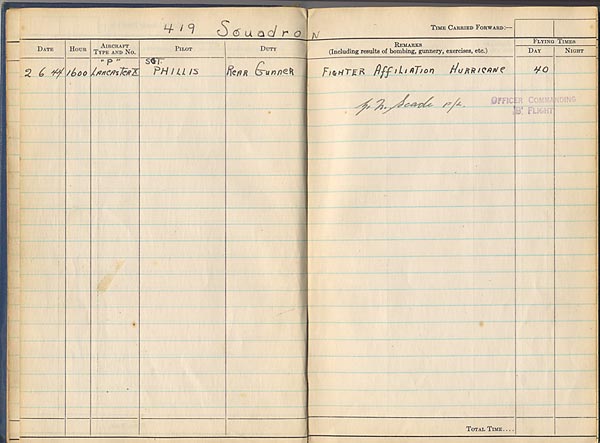 419 Squadron
TIME CARRIED FORWARD:—
DATE HOUR AIRCRAFT TYPE AND NO. PILOT DUTY REMARKS (Including results of bombing, gunnery, exercises, etc.) FLYING TIMES DAY NIGHT
"P" SGT.
2 6 44 1600 LANCASTER X PHILLIS REAR GUNNER FIGHTER AFFILIATION HURRICANE 40
OFFICER COMMANDING
'B' FLIGHT
TOTAL TIME....